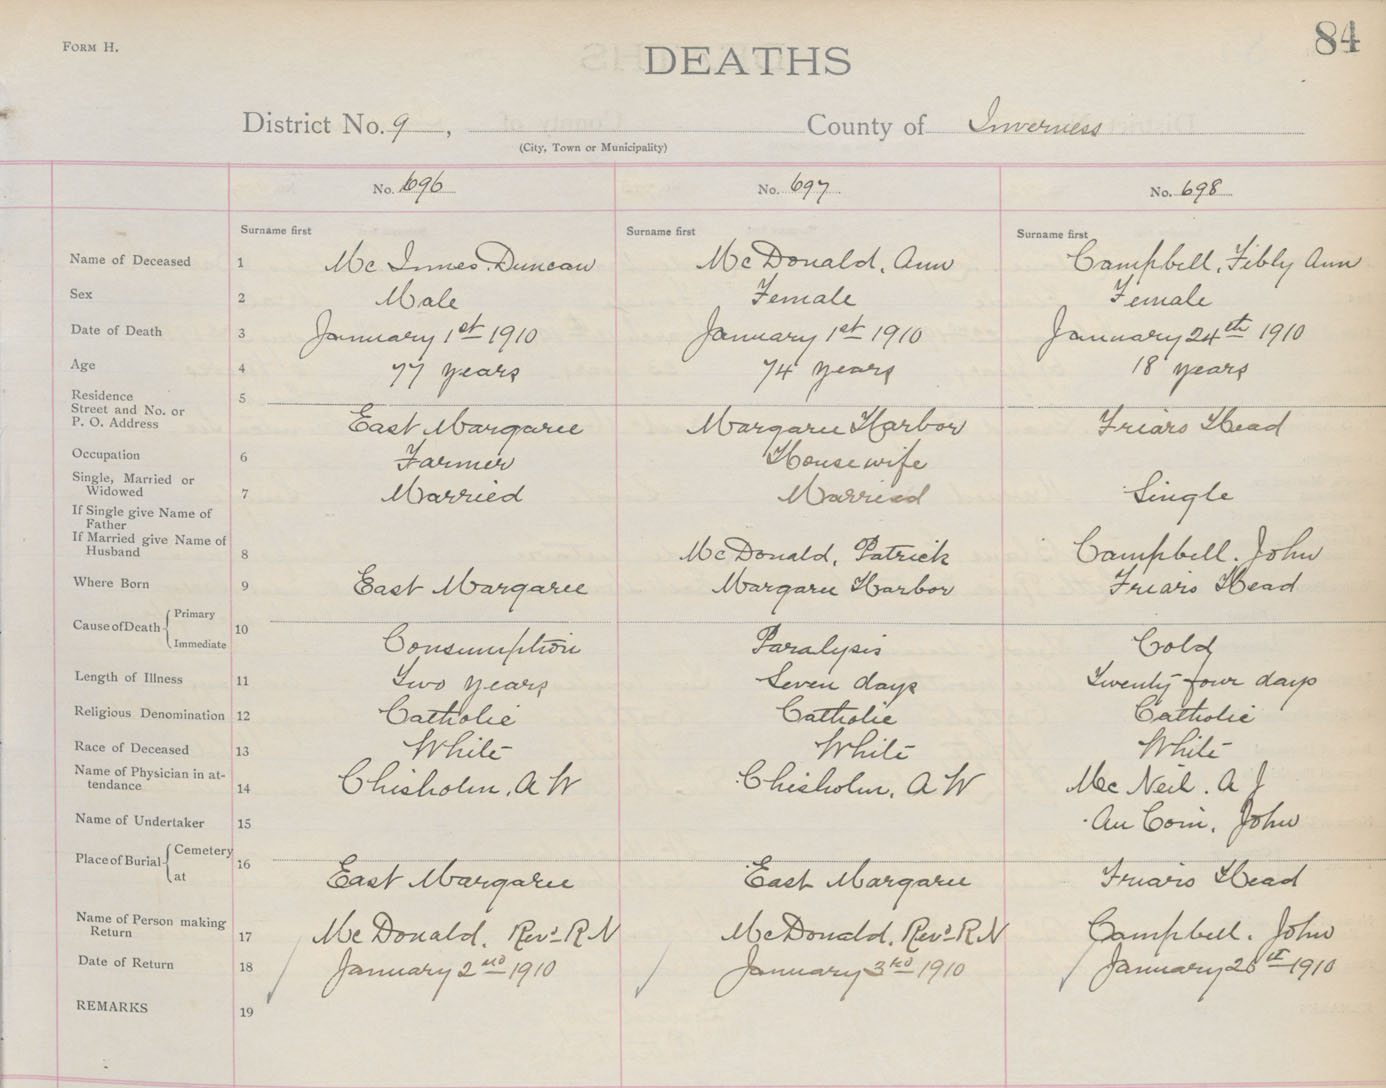 FORM H.
84
DEATHS
District No. 9, County of Inverness
(City, Town or Municipality)
No. 696 No. 697 No. 698
Surname first Surname first Surname first
Name of Deceased 1 Mc Innes. Duncan McDonald, Ann Campbell, Fibly Ann
Sex 2 Male Female Female
Date of Death 3 January 1st 1910 January 1st 1910 January 24th 1910
Age 4 77 years 74 years 18 years
Residence
Street and No. or
P. O. Address 5 East Margaree Margaree Harbor Friars Head
Occupation 6 Farmer Housewife
Single, Married or
Widowed 7 Married Married Single
If Single give Name of
Father
If Married give Name of
Husband 8 McDonald, Patrick Campbell. John
Where Born 9 East Margaree Margaree Harbor Friars Head
Cause of Death Primary
Immediate 10 Consumption Paralysis Cold
Length of Illness 11 Two years Seven days Twenty four days
Religious Denomination 12 Catholic Catholic Catholic
Race of Deceased 13 White White White
Name of Physician in at-
tendance 14 Chisholm, A W Chisholm, A W Mc Neil. A J
Name of Undertaker 15 Au Coin, John
Place of Burial Cemetery
at 16 East Margaree East Margaree Friars Head
Name of Person making
Return 17 McDonald, Revd R N McDonald, Revd R N Campbell. John
Date of Return 18 January 2nd 1910 January 3rd 1910 January 1910
REMARKS 19